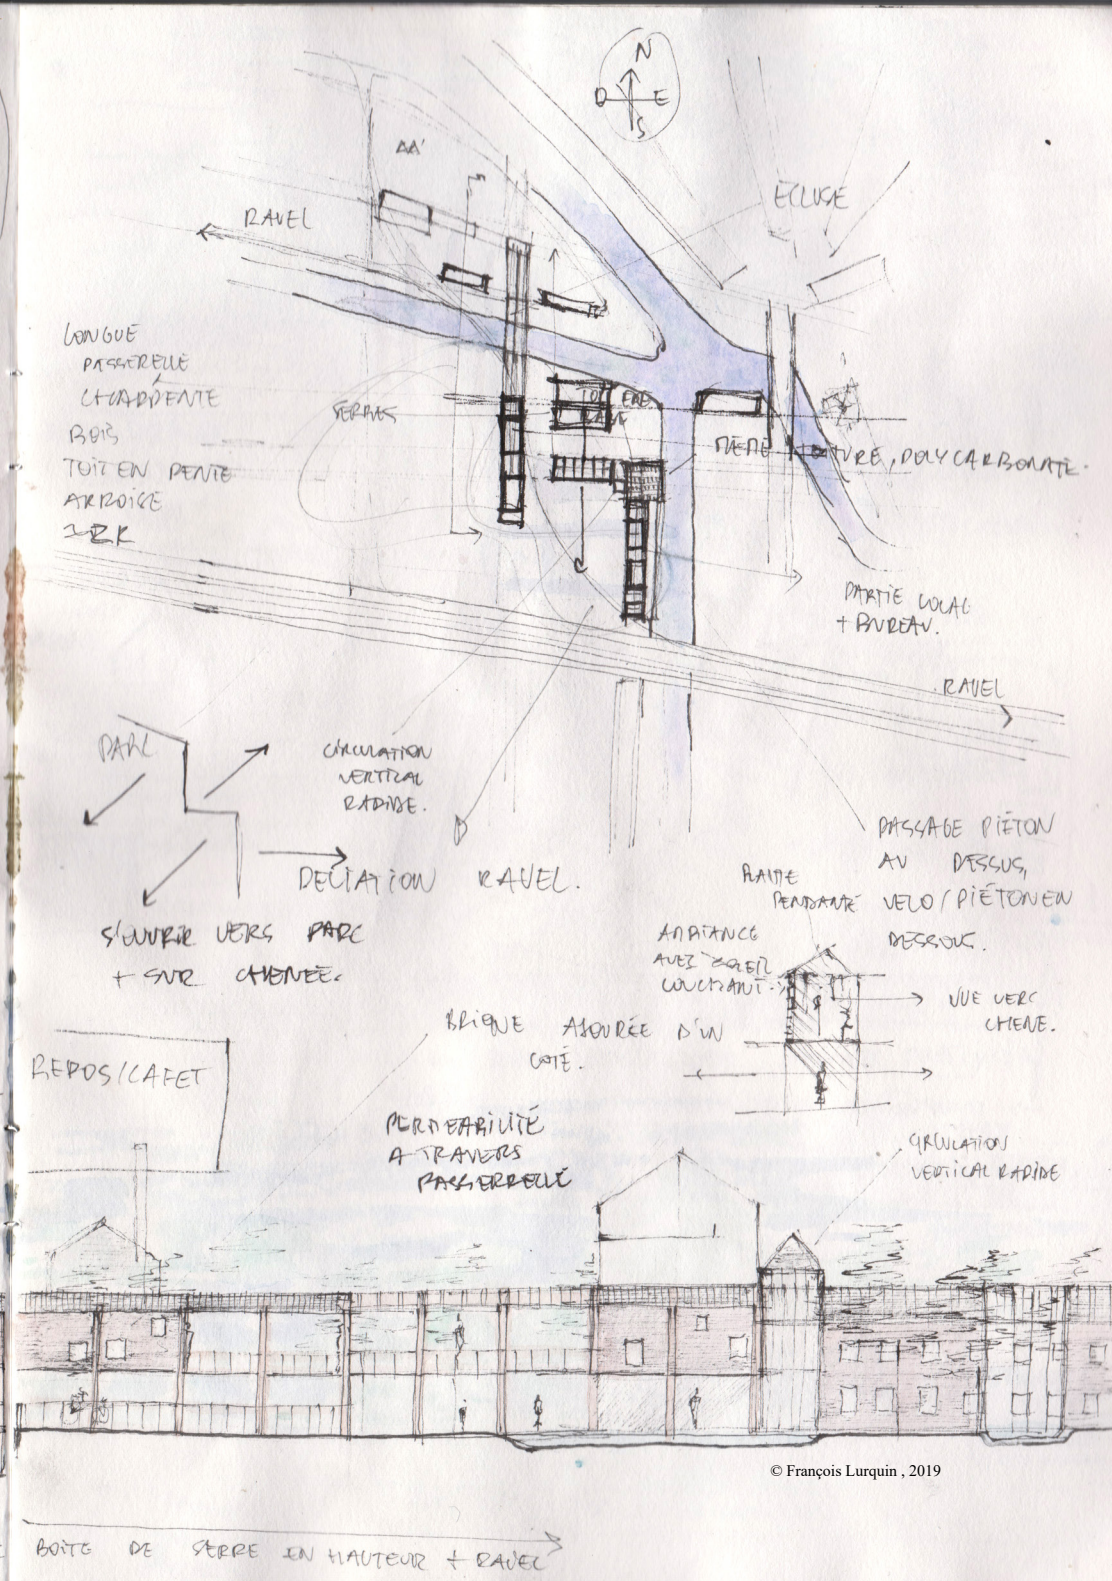 N
O E
S
AA'
ÉCLUSE
RAVEL
LONGUE
PASSERELLE
CHARPENTE
BOIS
TOIT EN PENTE
ARDOISE
SERRES
MEME
TURE, POLYCARBONATE.
PARTIE LOCAL
+ BUREAU.
RAVEL
PARC
CIRCULATION
VERTICAL
RAPIDE.
DEVIATION RAVEL.
S'OUVRIR VERS PARC
+ SUR CHENEE.
PASSAGE PIÉTON
AU DESSUS,
VELO/PIÉTON EN
DESSOUS.
PLANTE
PENDANTE
AMBIANCE
AVEC SOLEIL
COUCHANT.
VUE VERS
CHENE.
BRIQUE AJOURÉE D'UN
COTÉ.
REPOS/CAFET
PERMEABILITÉ
A TRAVERS
PASSERRELLE
CIRCULATION
VERTICAL RAPIDE
© François Lurquin , 2019
BOITE DE SERRE EN HAUTEUR + RAVEL